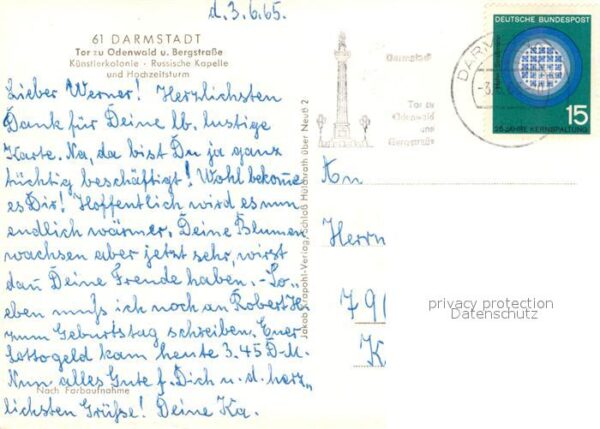 d. 3.6.65.
61 DARMSTADT
Tor zu Odenwald u. Bergstraße
Künstlerkolonie - Russische Kapelle
und Hochzeitsturm
Lieber Werner! Herzlichsten
Dank für Deine lb. lustige
Karte. Na, da bist Du ja ganz
tüchtig beschäftigt! Wohl bekome
es Dir! Hoffentlich wird es nun
endlich wärmer. Deine Blumen
wachsen aber jetzt sehr, wirst
dan Deine Freude haben. - So„
eben muß ich noch an Robert H.
zum Geburtstag schreiben. Euer
Lottogeld kam heute 3.45 D-M.
Nun alles Gute f. Dich u. d. herz„
lichsten Grüße! Deine Ka.
Nach Farbaufnahme
Jakob Krapohl-Verlag, Schloß Hülchrath über Neuß 2
Darmstadt
Tor zu
Odenwald
und
Bergstraße
DARM
-3.
DEUTSCHE BUNDESPOST
15
25 JAHRE KERNSPALTUNG
An
Herrn
791
K
privacy protection
Datenschutz